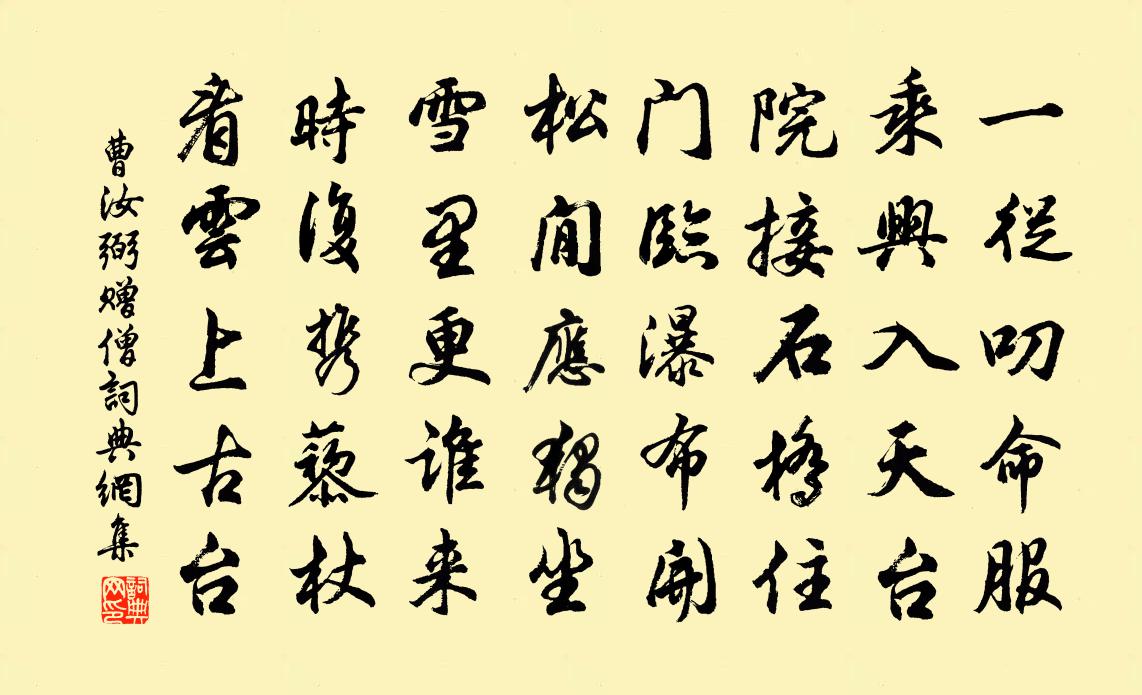 一從叨命服
乘興入天台
院接石橋住
门臨瀑布開
松間應獨坐
雪里更誰来
時復携藜杖
看雲上古台
曹汝弼赠僧詞典網集
詞典网印